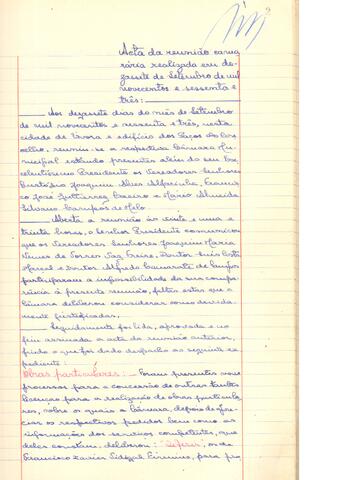 Acta da reunião cama
rária realizada em de-
zassete de Setembro de mil
novecentos e sessenta e
três:
Aos dezassete dias do mês de Setembro
de mil novecentos e sessenta e três, nesta
cidade de Évora e edifício dos Paços do Con
celho, reuniu-se a respectiva Câmara Mu-
nicipal estando presentes além do seu Ex
celentíssimo Presidente os Vereadores Senhores
Joaquim Alves
co José Caeiro e Mário Almeida
Silvano Campos de Melo.
Aberta a reunião às vinte e uma e
trinta horas, o Senhor Presidente comunicou
que os Vereadores Senhores Joaquim Maria
Nunes de Torres Vaz Freire, Doutor Luís
e Doutor Alfredo de
participaram a impossibilidade da sua compa
rência à presente reunião, faltas estas que a
Câmara deliberou considerar como devida-
mente justificadas.
Seguidamente foi lida, aprovada e no
fim assinada a acta da reunião anterior,
findo o que foi dado despacho ao seguinte ex
pediente:
Obras particulares: - Foram presentes nove
processos para a concessão de outras tantas
licenças para a realização de obras particula
res, sobre os quais a Câmara, depois de apre
ciar os respectivos pedidos bem como as
informações dos serviços competentes, que
deles constam, deliberou: "Deferir", os de
Francisco Xavier, para pro